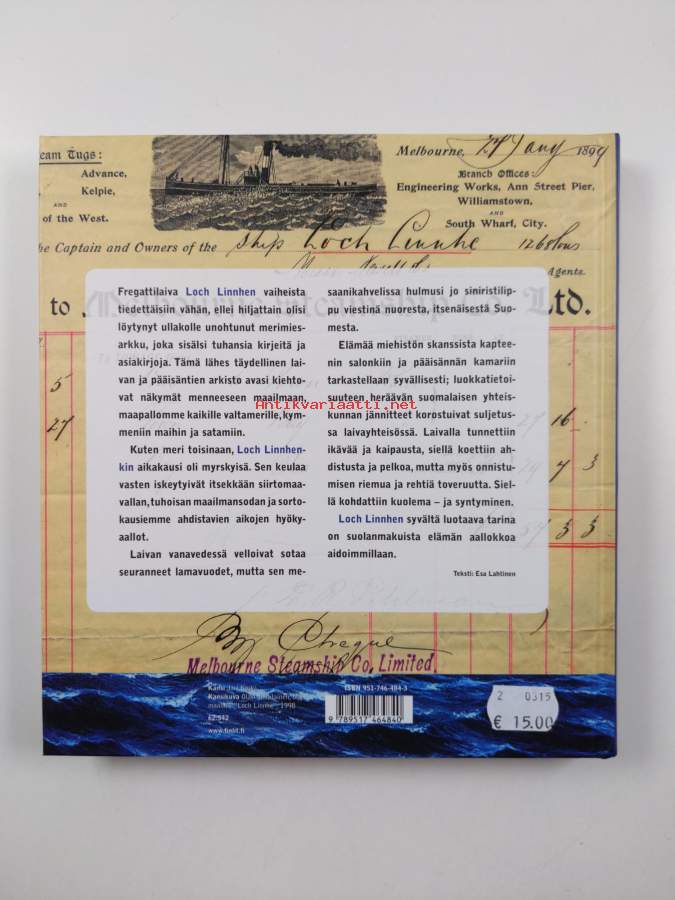 eam Tugs:
Advance,
Kelpie,
AND
of the West.
Melbourne, 1899
Branch Offices:
Engineering Works, Ann Street Pier,
Williamstown,
AND
South Wharf, City.
he Captain and Owners of the Ship Loch Linnhe
Agents.
to Melbourne Steamship Co. Ltd.
5
27
16
7 3
3 3
Fregattilaiva Loch Linnhen vaiheista
tiedettäisiin vähän, ellei hiljattain olisi
löytynyt ullakolle unohtunut merimies-
arkku, joka sisälsi tuhansia kirjeitä ja
asiakirjoja. Tämä lähes täydellinen lai-
van ja pääisäntien arkisto avasi kiehto-
vat näkymät menneeseen maailmaan,
maapallomme kaikille valtamerille, kym-
meniin maihin ja satamiin.
Kuten meri toisinaan, Loch Linnhen-
kin aikakausi oli myrskyisä. Sen keulaa
vasten iskeytyivät itsekkään siirtomaa-
vallan, tuhoisan maailmansodan ja sorto-
kausiemme ahdistavien aikojen hyöky-
aallot.
Laivan vanavedessä velloivat sotaa
seuranneet lamavuodet, mutta sen me-
saanikahvelissa hulmusi jo siniristilip-
pu viestinä nuoresta, itsenäisestä Suo-
mesta.
Elämää miehistön skanssista kaptee-
nin salonkiin ja pääisännän kamariin
tarkastellaan syvällisesti; luokkatietoi-
suuteen heräävän suomalaisen yhteis-
kunnan jännitteet korostuivat suljetus-
sa laivayhteisössä. Laivalla tunnettiin
ikävää ja kaipausta, siellä koettiin ah-
distusta ja pelkoa, mutta myös onnistu-
misen riemua ja rehtiä toveruutta. Siel-
lä kohdattiin kuolema – ja syntyminen.
Loch Linnhen syvältä luotaava tarina
on suolanmakuista elämän aallokkoa
aidoimmillaan.
Teksti: Esa Lahtinen
Antikvariaatti.net
By Cheque
Melbourne Steamship Co, Limited.
Kansikuva
"Loch Linnhe", 1998
62.542
www.finlit.fi
ISBN 951-746-484-3
9 789517 464840
2 0315
€ 15.00